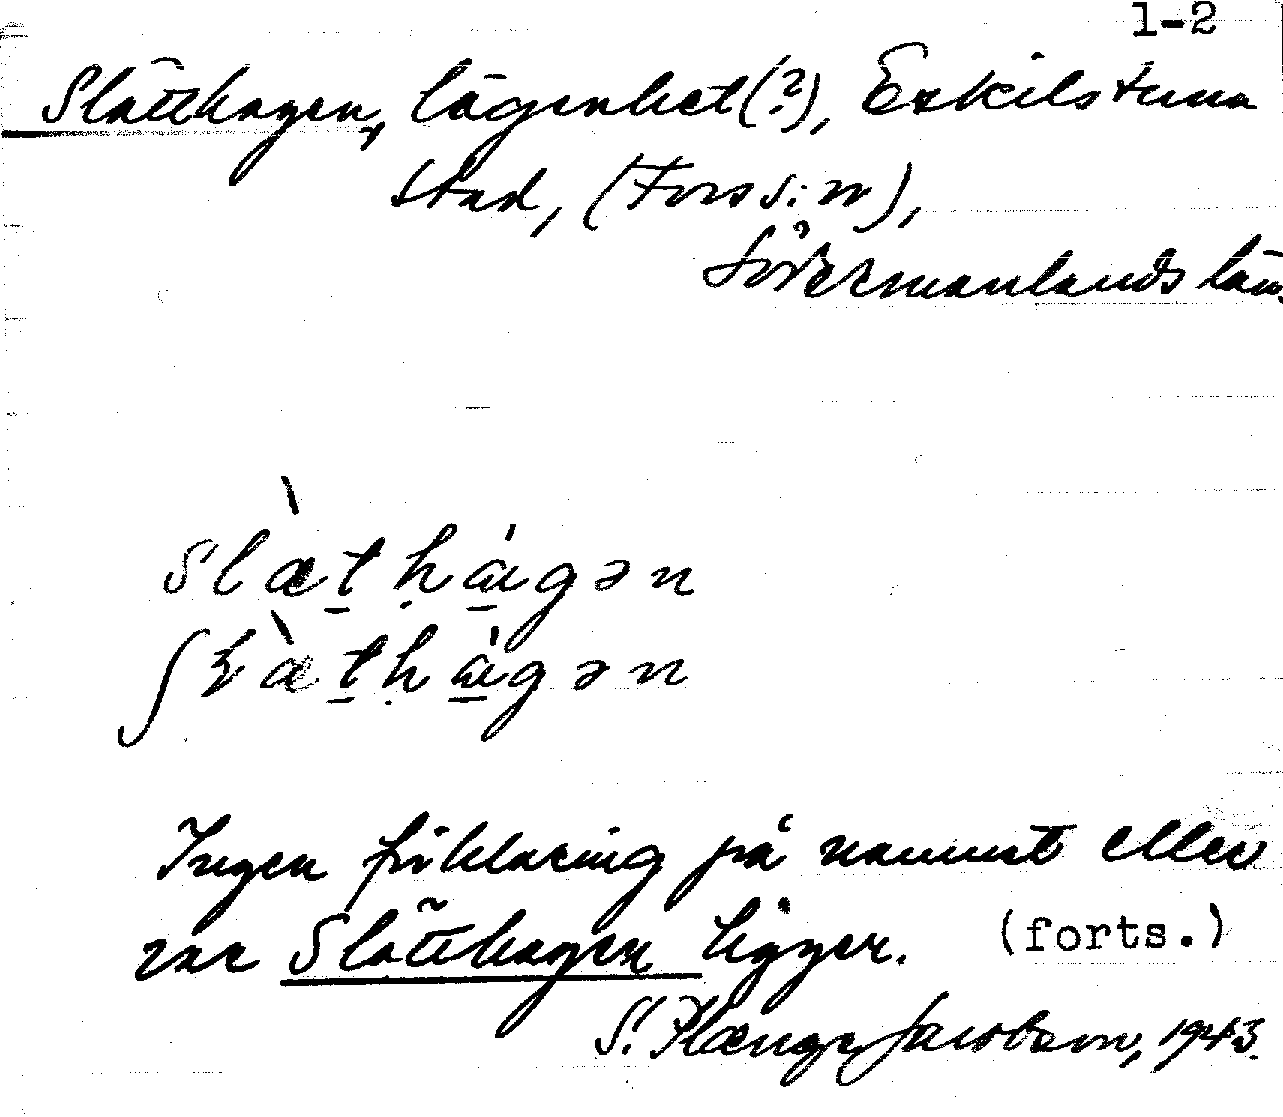 1-2
Slåtthagen, lägenhet(?), Eskilstuna
stad, (Fors s:n),
Södermanlands län.
slæ̀thá̱gən
ʃɽæ̀thá̱gən
Ingen förklaring på namnet eller
var Slåtthagen ligger. (forts.)
S. Plænge Jacobson, 1943.